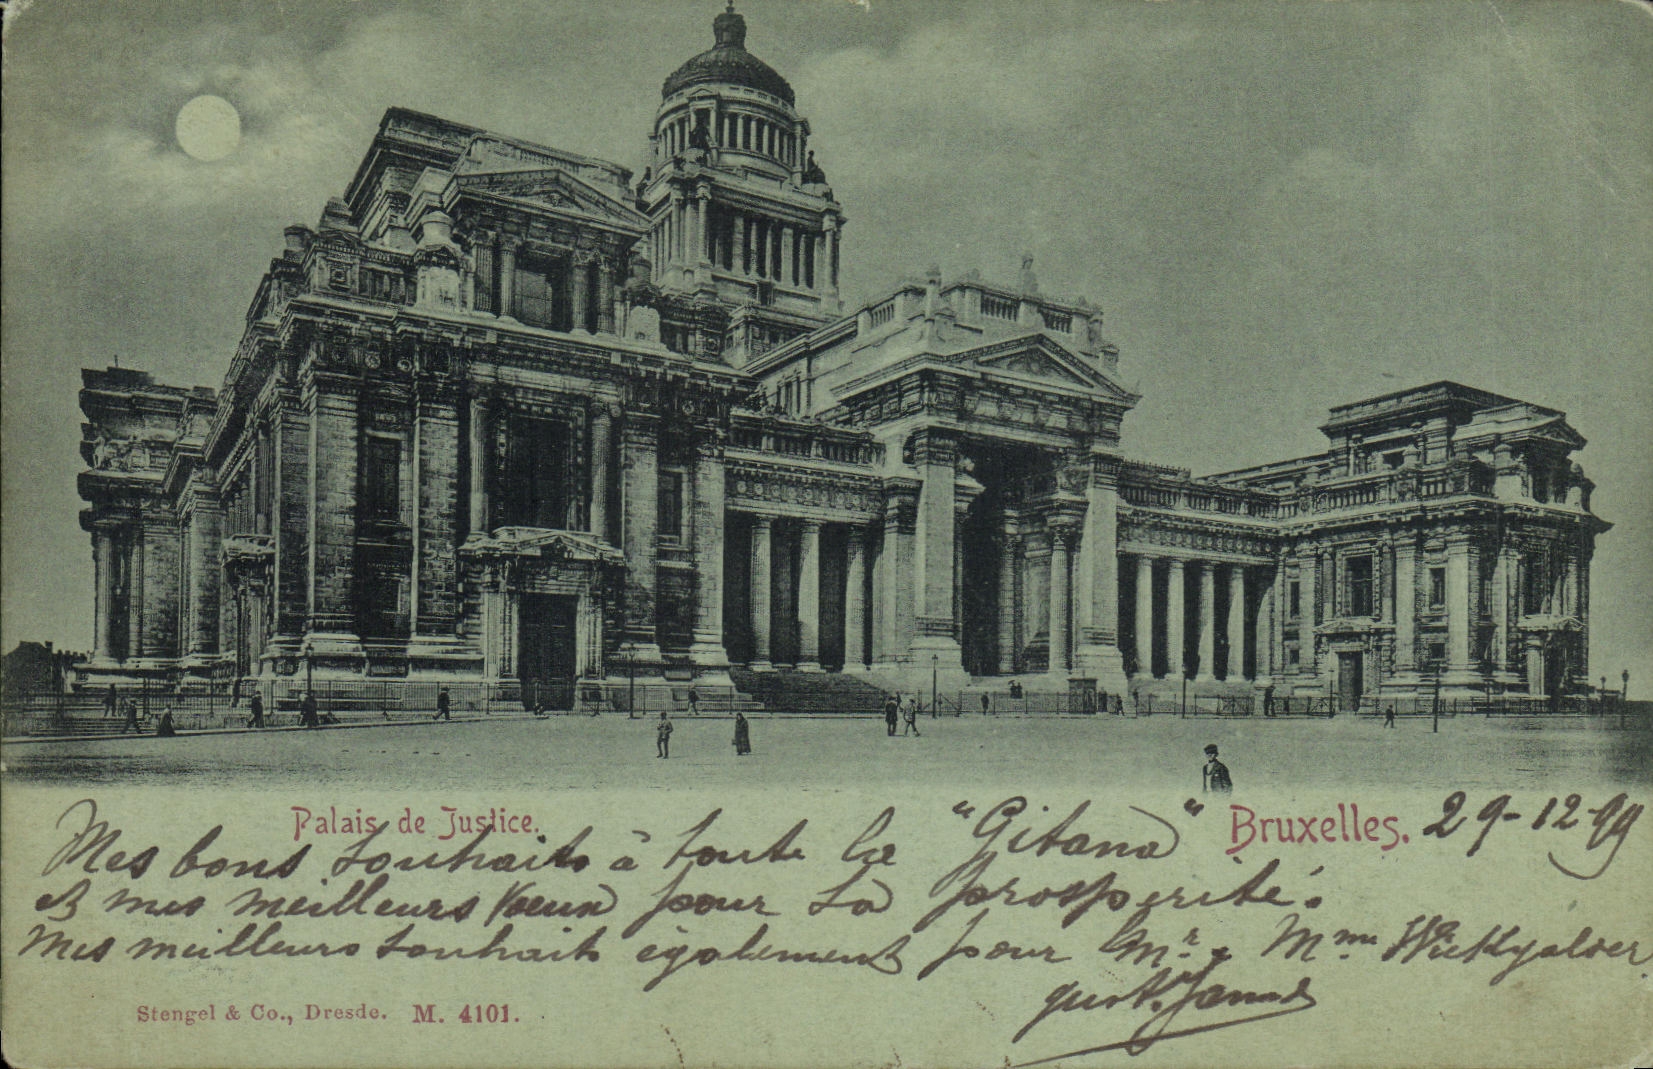 Palais de Justice.
Bruxelles. 29-12-99
Mes bons souhaits à toute la "Gitana"
et mes meilleurs vœux pour sa prospérité.
Mes meilleurs souhaits également pour Mr. & Mme
Stengel & Co., Dresde. M. 4101.